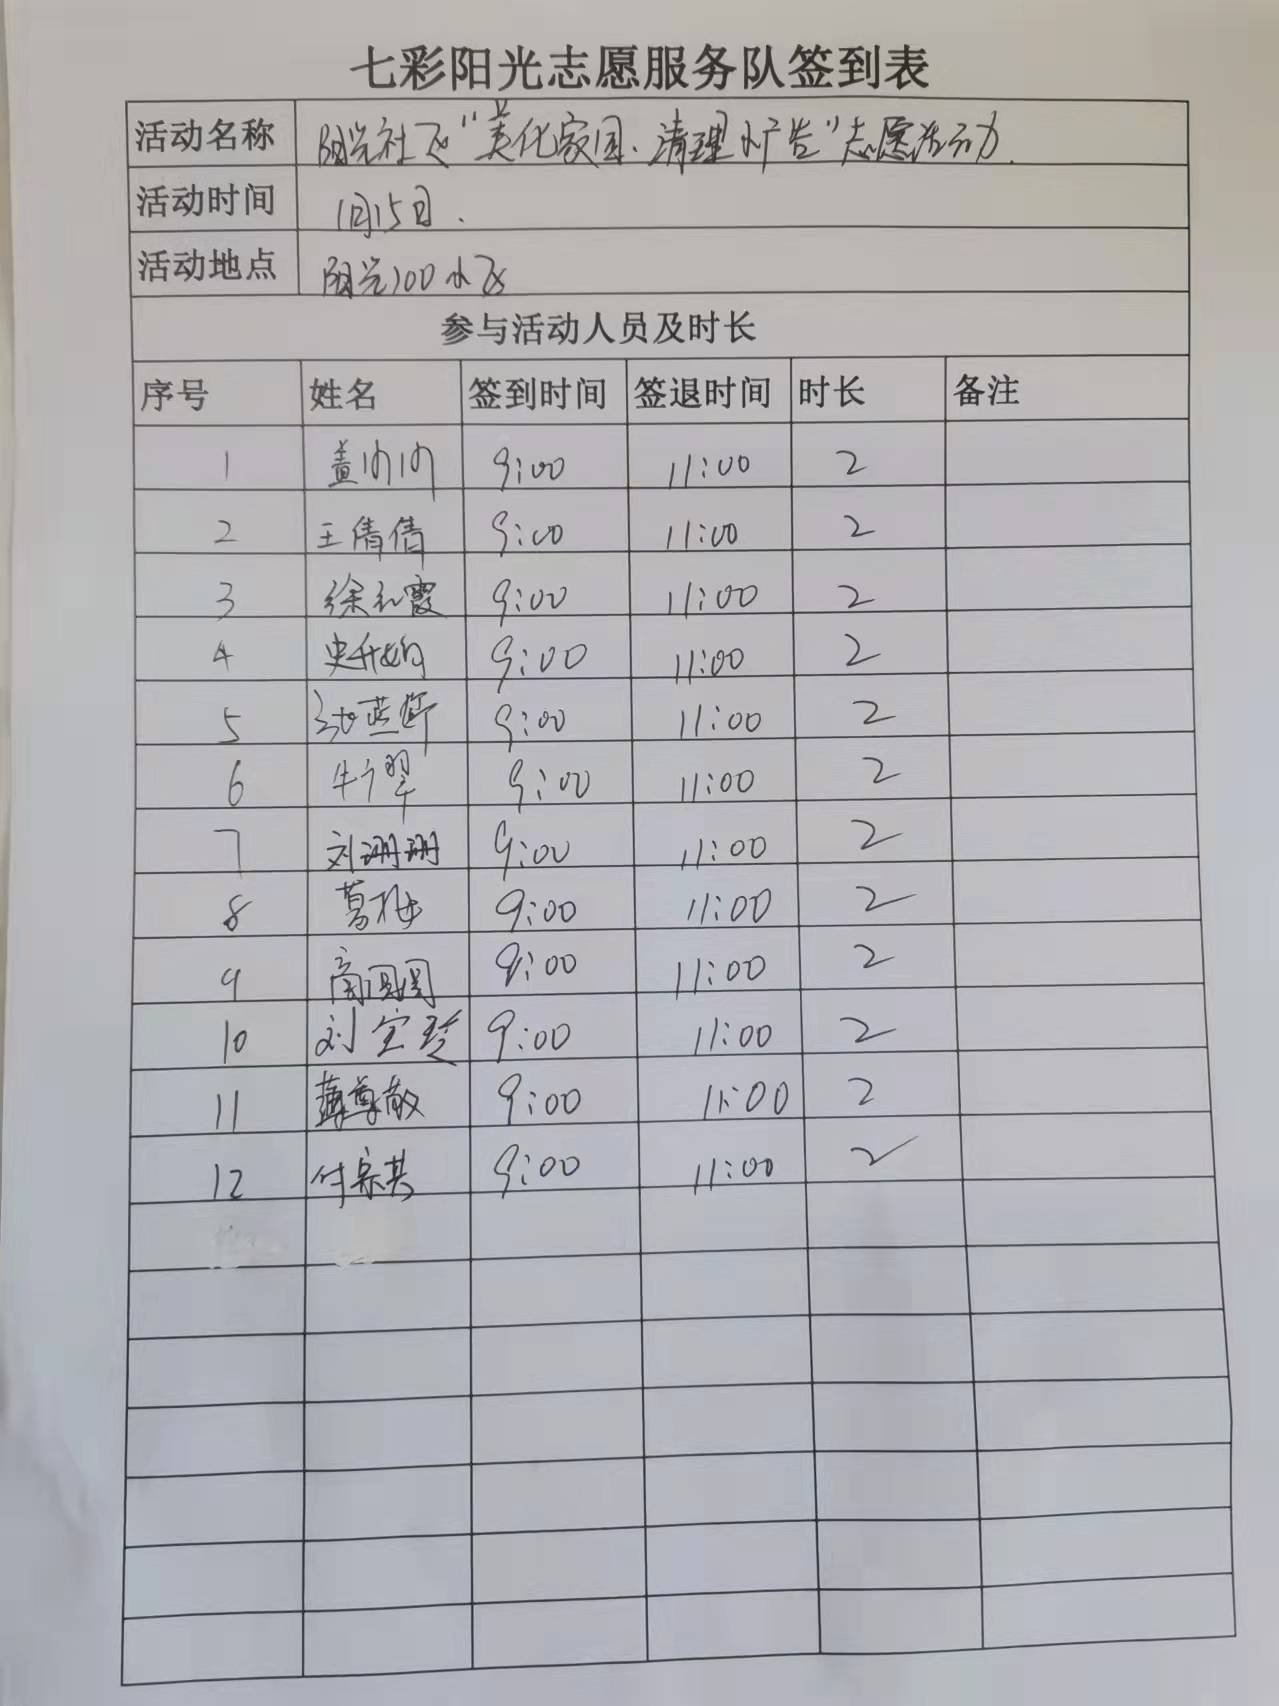 七彩阳光志愿服务队签到表
活动名称 阳光社区"美化家园、清理小广告"志愿活动.
活动时间 1月15日.
活动地点 阳光100小区
参与活动人员及时长
序号 姓名 签到时间 签退时间 时长 备注
1 盖 9:00 11:00 2
2 王倩倩 9:00 11:00 2
3 徐红霞 9:00 11:00 2
4 史 9:00 11:00 2
5 9:00 11:00 2
6 牛 9:00 11:00 2
7 刘珊珊 9:00 11:00 2
8 葛梅 9:00 11:00 2
9 商圆圆 9:00 11:00 2
10 刘宝琴 9:00 11:00 2
11 薄尊敬 9:00 11:00 2
12 付宗其 9:00 11:00 2